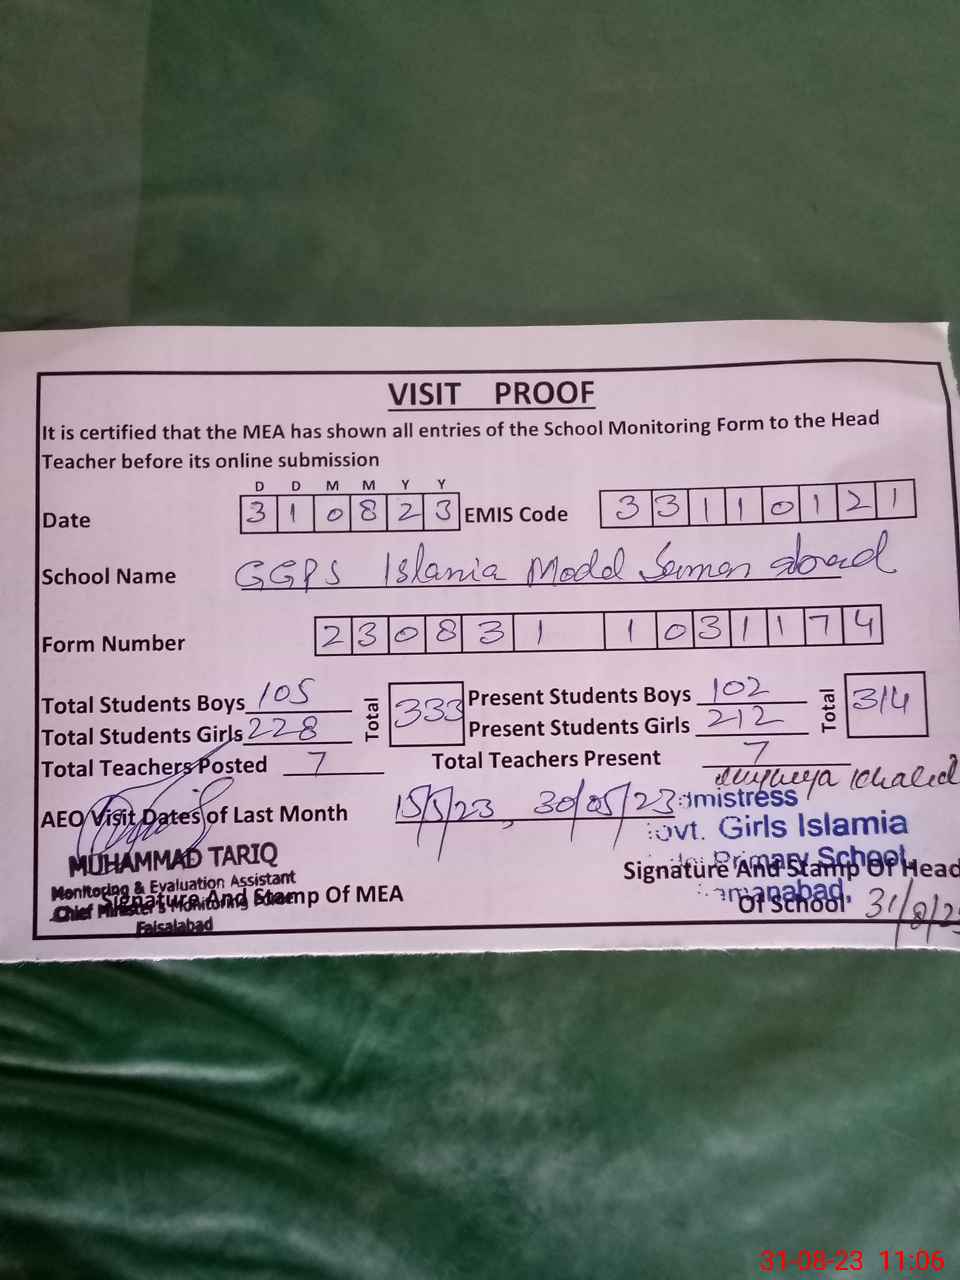 VISIT PROOF
It is certified that the MEA has shown all entries of the School Monitoring Form to the Head
Teacher before its online submission
D D M M Y Y
Date 3 1 0 8 2 3 EMIS Code 3 3 1 1 0 1 2 1
School Name GGPS Islamia Model Saman abad
Form Number 2 3 0 8 3 1 1 0 3 1 1 7 4
Total Students Boys 105 Total 333 Present Students Boys 102 Total 314
Total Students Girls 228 Present Students Girls 212
Total Teachers Posted 7 Total Teachers Present 7
Khalid
AEO Visit Dates of Last Month 15/5/23, 30/05/23
mistress
ovt. Girls Islamia
Primary School,
manabad,
MUHAMMAD TARIQ
Monitoring & Evaluation Assistant
Chief Minister's Monitoring Force
Faisalabad
Signature And Stamp Of MEA
Signature And Stamp Of Head
Of School 31/8/23
31-08-23 11:06